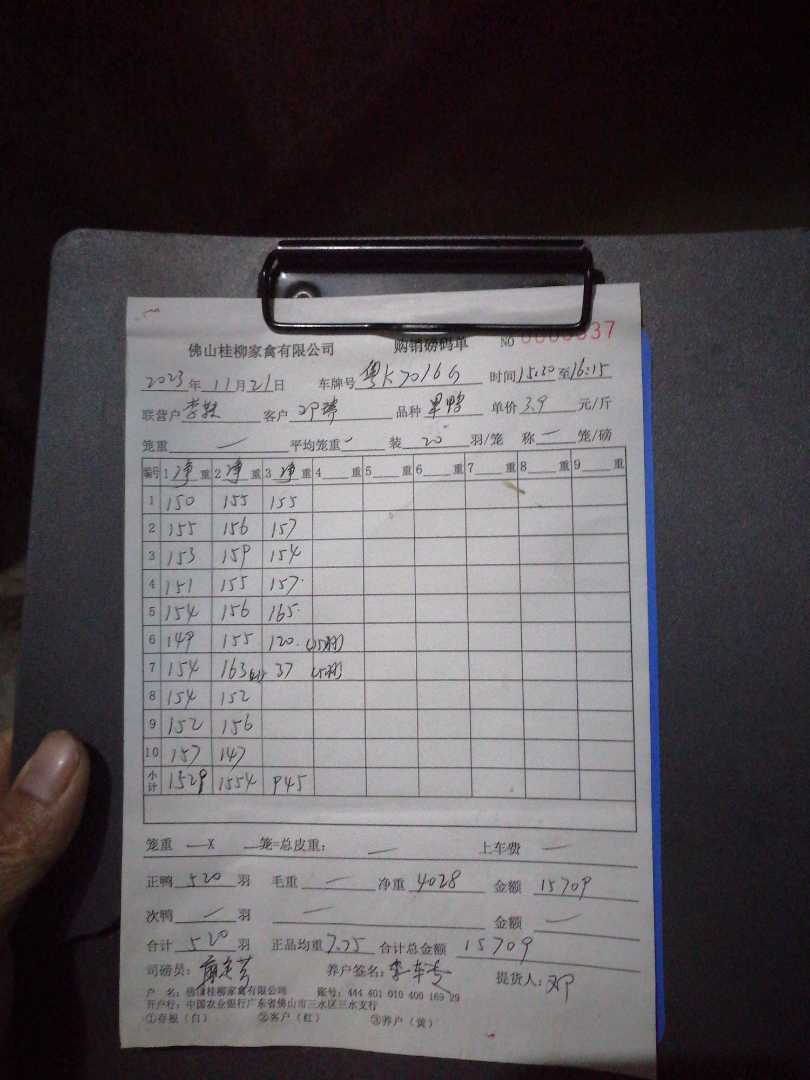 佛山桂柳家禽有限公司 购销磅码单 NO 0000037
2023年11月21日 车牌号粤K7016G 时间15:20至16:15
联营户 客户邓 品种果鸭 单价3.9元/斤
笼重 — 平均笼重 — 装20羽/笼 称 — 笼/磅
编号 1净重 2净重 3净重 4重 5重 6重 7重 8重 9重
1 150 155 155
2 155 156 157
3 153 159 154
4 151 155 157
5 154 156 165
6 149 155 120 (15羽)
7 154 163 37 (5羽)
8 154 152
9 152 156
10 157 147
小计 1529 1554 945
笼重 — X — 笼=总皮重: — 上车费 —
正鸭520羽 毛重 — 净重4028 金额15709
次鸭 — 羽 — 金额 —
合计520羽 正品均重7.75 合计总金额15709
司磅员: 养户签名: 李 提货人:邓
户 名:佛山桂柳家禽有限公司 账号:444 401 010 400 169 29
开户行:中国农业银行广东省佛山市三水区三水支行
①存根(白) ②客户(红) ③养户(黄)